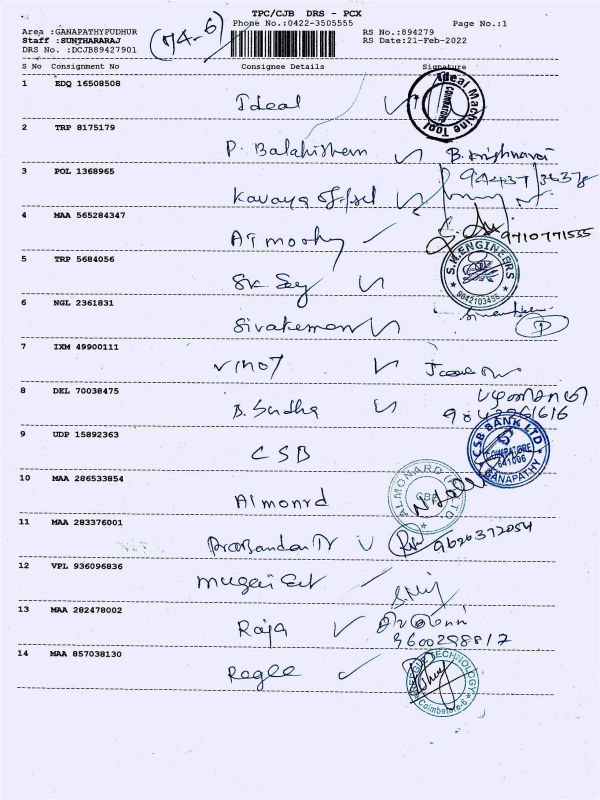 TPC/CJB DRS - PCX
Phone No.:0422-3505555
Page No.:1
Area :GANAPATHYPUDHUR
Staff :SUNTHARARAJ
DRS No. :DCJB89427901
(74-6)
RS No.:894279
RS Date:21-Feb-2022
S No Consignment No Consignee Details Signature
1 EDQ 16508508 Ideal
Ideal Machine Tool COIMBATORE
2 TRP 8175179 P. Balakishem B.
3 POL 1368965 Kavaya offset
4 MAA 565284347 AT moorthy 9710771555
5 TRP 5684056 SK
S.M.ENGINEERS
9842103456
6 NGL 2361831 Sivakeman
7 IXM 49900111 Vinoy
8 DEL 70038475 B. Sudha
9 UDP 15892363 CSB
CSB BANK LTD
COIMBATORE
641006
GANAPATHY
10 MAA 286533854 Almonrd
ALMONARD (P) LTD.
CBE
11 MAA 283376001 9620372054
12 VPL 936096836
13 MAA 282478002 Raja
9600298817
14 MAA 857038130 Ragle
TECHNOLOGY
Coimbatore-6